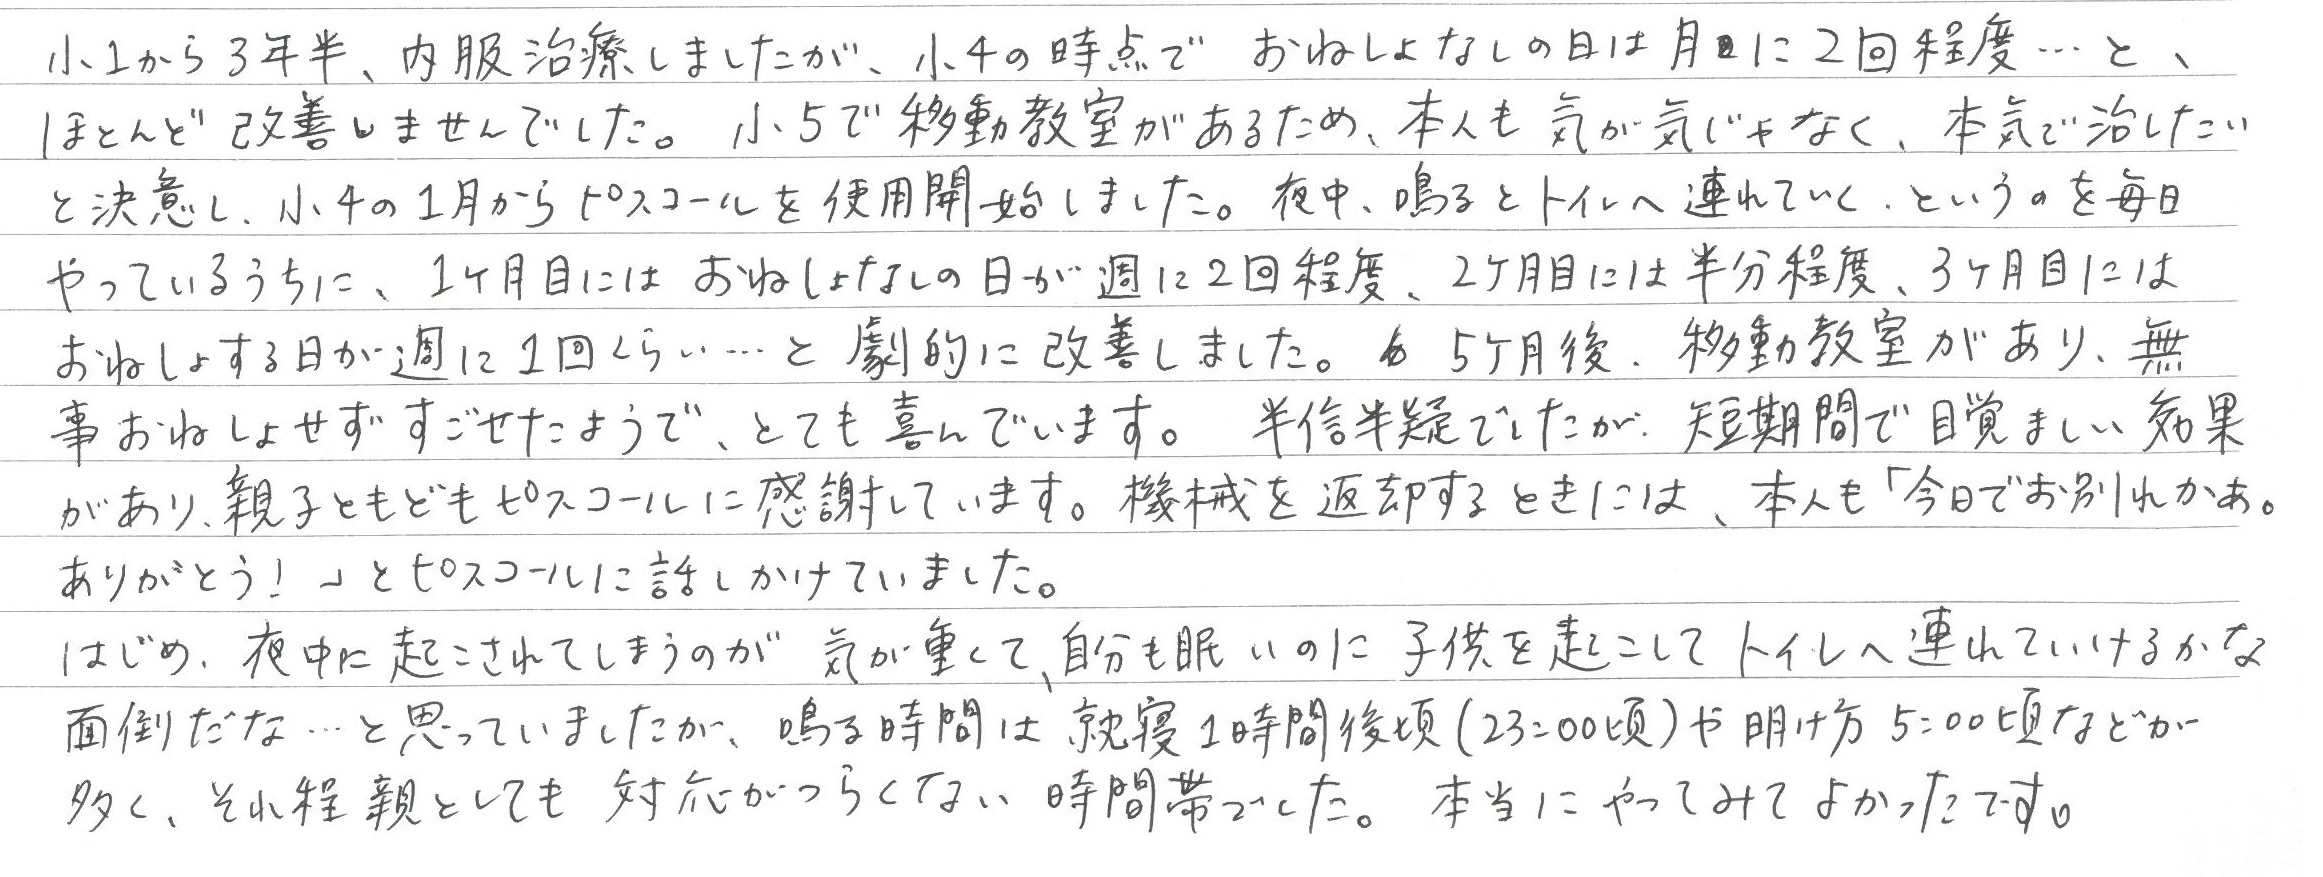 小1から3年半、内服治療しましたが、小4の時点で おねしょなしの日は月に2回程度…と、
ほとんど改善しませんでした。小5で移動教室があるため、本人も気が気じゃなく、本気で治したい
と決意し、小4の1月からピスコールを使用開始しました。夜中、鳴るとトイレへ連れていく、というのを毎日
やっているうちに、1ヶ月目にはおねしょなしの日が週に2回程度、2ヶ月目には半分程度、3ヶ月目には
おねしょする日が週に1回くらい…と劇的に改善しました。5ヶ月後、移動教室があり、無
事おねしょせずすごせたようで、とても喜んでいます。 半信半疑でしたが、短期間で目覚ましい効果
があり、親子ともどもピスコールに感謝しています。機械を返却するときには、本人も「今日でお別れかぁ。
ありがとう!」とピスコールに話しかけていました。
はじめ、夜中に起こされてしまうのが気が重くて、自分も眠いのに子供を起こしてトイレへ連れていけるかな
面倒だな…と思っていましたが、鳴る時間は就寝1時間後頃(23:00頃)や明け方5:00頃などが
多く、それ程親としても対応がつらくない時間帯でした。 本当にやってみてよかったです。